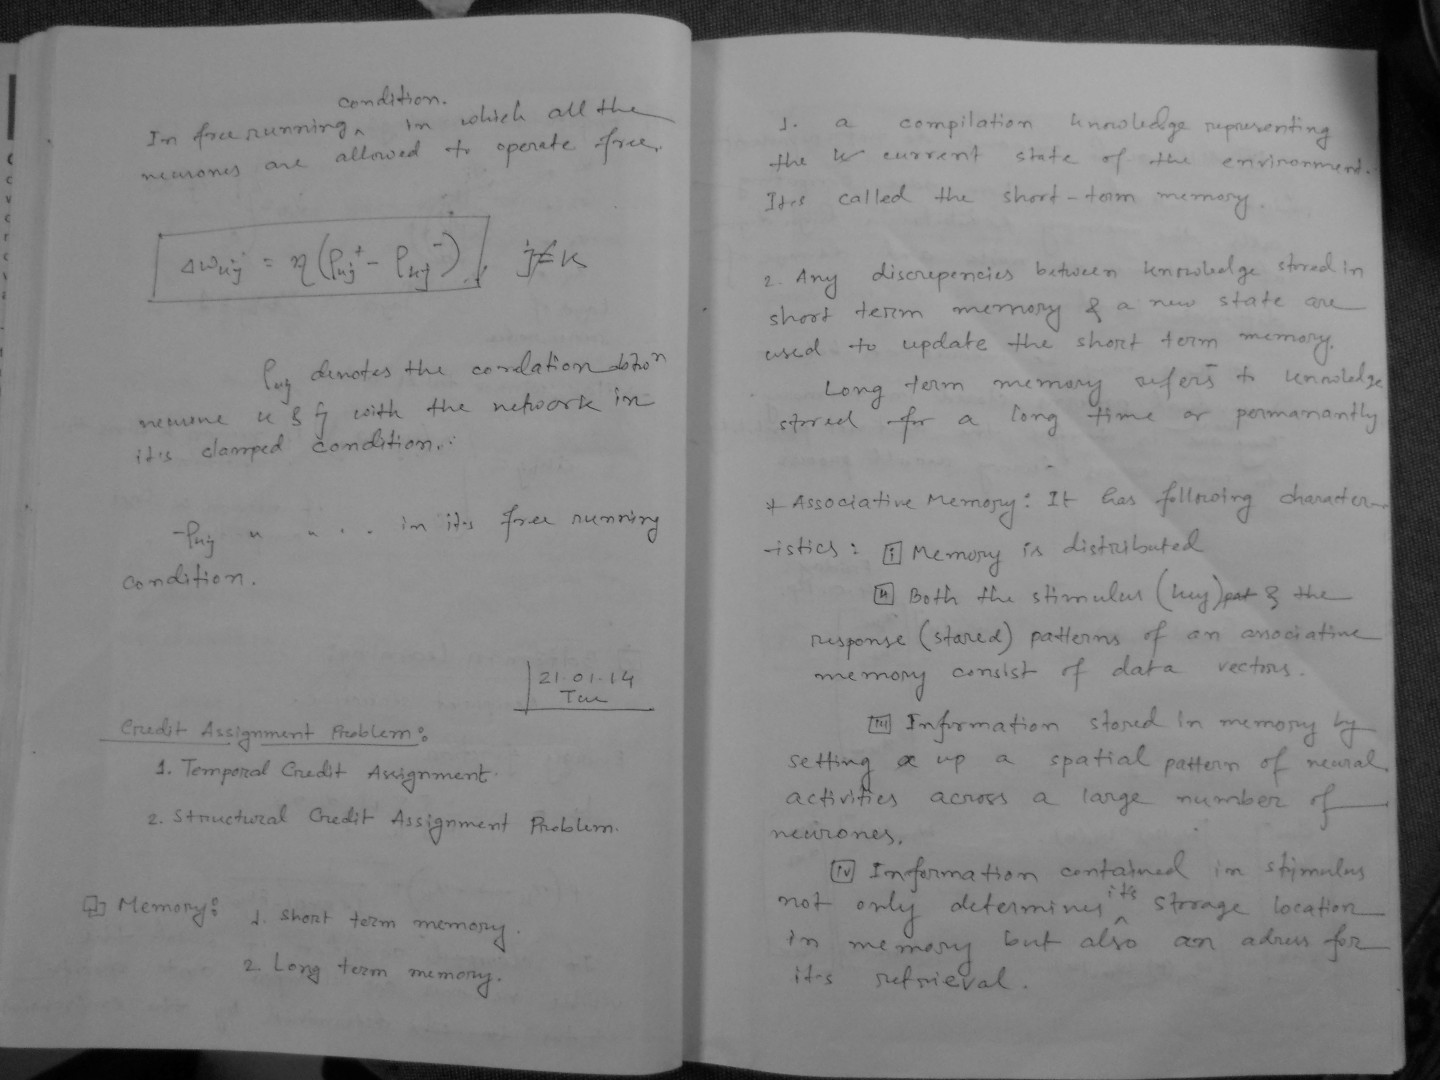 condition.
In free running ^ in which all the
neurones are allowed to operate free.
Δwkj = η(ρkj⁺ - ρkj⁻), j≠k
ρkj denotes the corelation
neurone k & j with the network in
it's clamped condition.
-ρkj " " . . in it's free running
condition.
21-01-14
Tue
Credit Assignment Problem:
1. Temporal Credit Assignment.
2. Structural Credit Assignment Problem.
Memory:
1. Short term memory.
2. Long term memory.
1. a compilation knowledge representing
the current state of the environment.
It's called the short-term memory.
2. Any discrepencies between knowledge stored in
short term memory & a new state are
used to update the short term memory.
Long term memory refers to knowledge
stored for a long time or permanantly
* Associative Memory: It has following character-
-istics: [i] Memory is distributed
[ii] Both the stimulus (key) pat & the
response (stored) patterns of an associative
memory consist of data vectors.
[iii] Information stored in memory by
setting up a spatial pattern of neural
activities across a large number of
neurones.
[iv] Information contained in stimulus
not only determines it's storage location
in memory but also an adress for
it's retrieval.